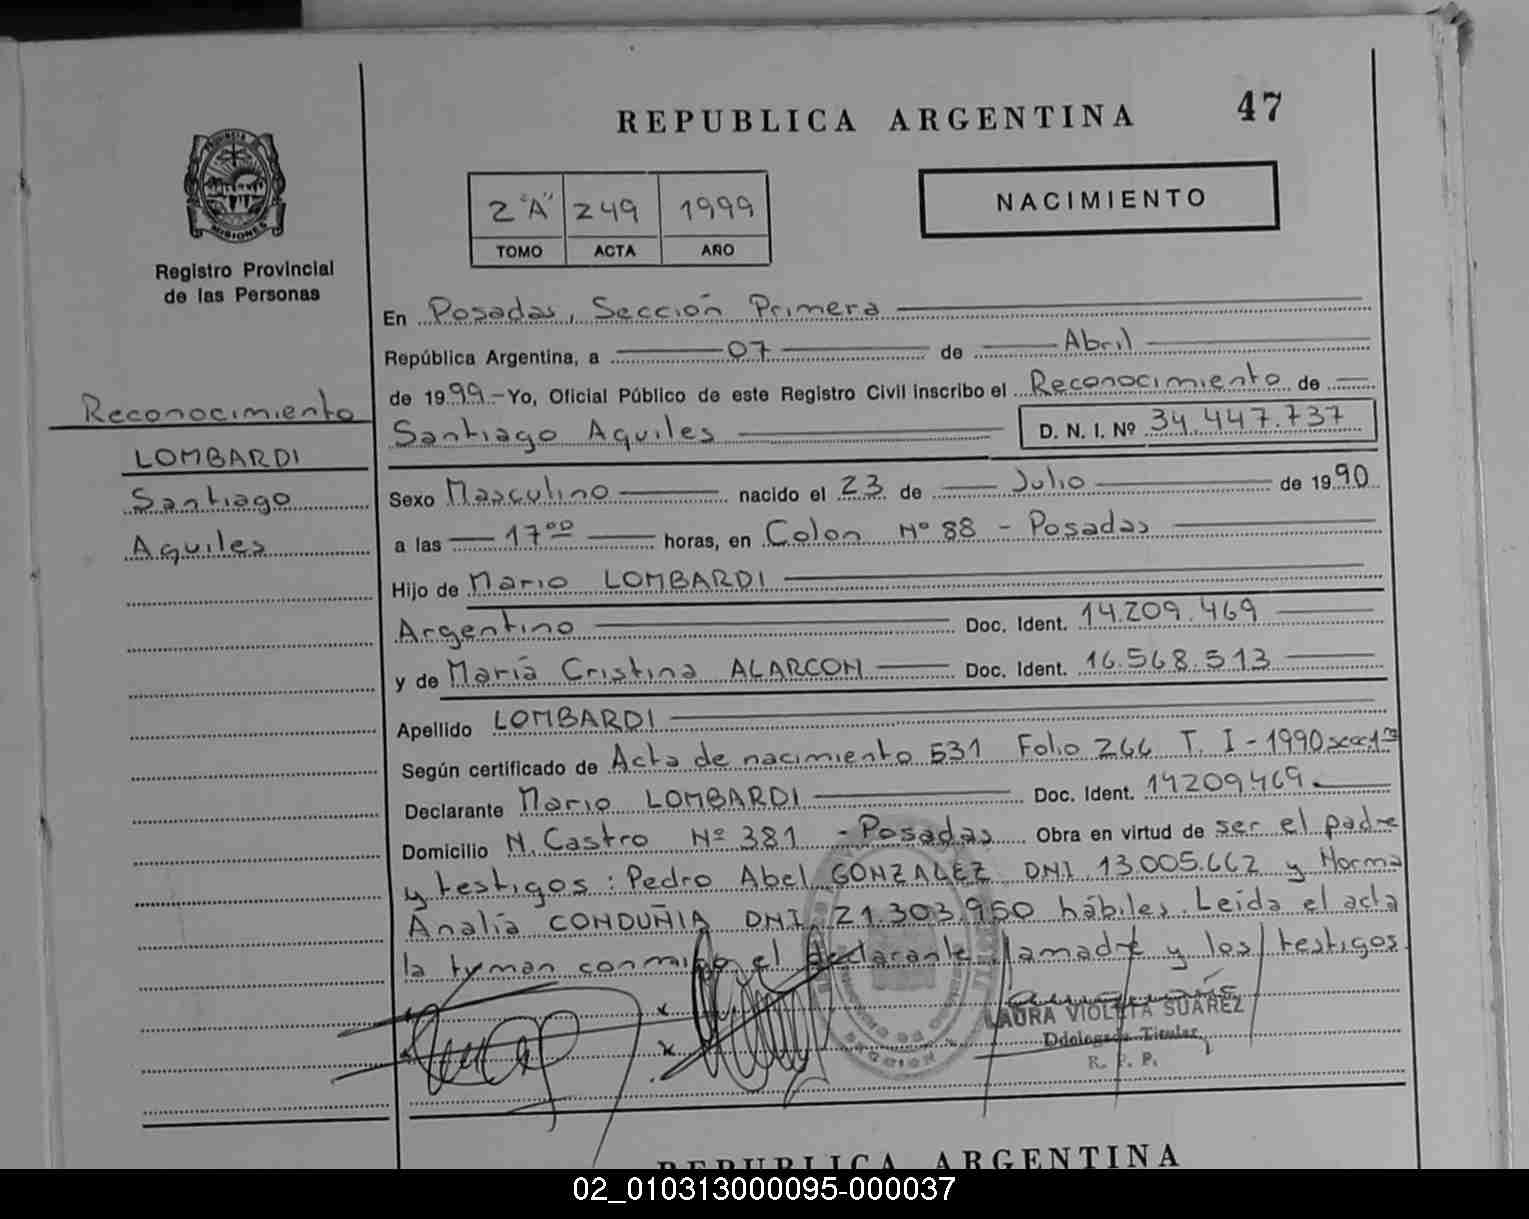 REPUBLICA ARGENTINA
47
PROVINCIA DE MISIONES
Registro Provincial
de las Personas
2 "A" 249 1999
TOMO ACTA AÑO
NACIMIENTO
En Posadas, Sección Primera
República Argentina, a 07 de Abril
de 1999.- Yo, Oficial Público de este Registro Civil inscribo el Reconocimiento de
Santiago Aquiles D. N. I. Nº 34.447.737
Reconocimiento
LOMBARDI
Santiago
Aquiles
Sexo Masculino nacido el 23 de Julio de 1990
a las 17ºº horas, en Colon Nº 88 - Posadas
Hijo de Mario LOMBARDI
Argentino Doc. Ident. 14.209.469
y de María Cristina ALARCON Doc. Ident. 16.568.513
Apellido LOMBARDI
Según certificado de Acta de nacimiento 531 Folio 266 T. I - 1990 secc. 1ra
Declarante Mario LOMBARDI Doc. Ident. 14209469
Domicilio N. Castro Nº 381 - Posadas Obra en virtud de ser el padre
y testigos: Pedro Abel GONZALEZ DNI 13.005.662 y Norma
Analía CONDUÑIA DNI 21.303.950 hábiles. Leida el acta
la firman conmigo el declarante, la madre y los testigos
LAURA VIOLETA SUAREZ
Delegada Titular
R. P. P.
REPUBLICA ARGENTINA
02_010313000095-000037